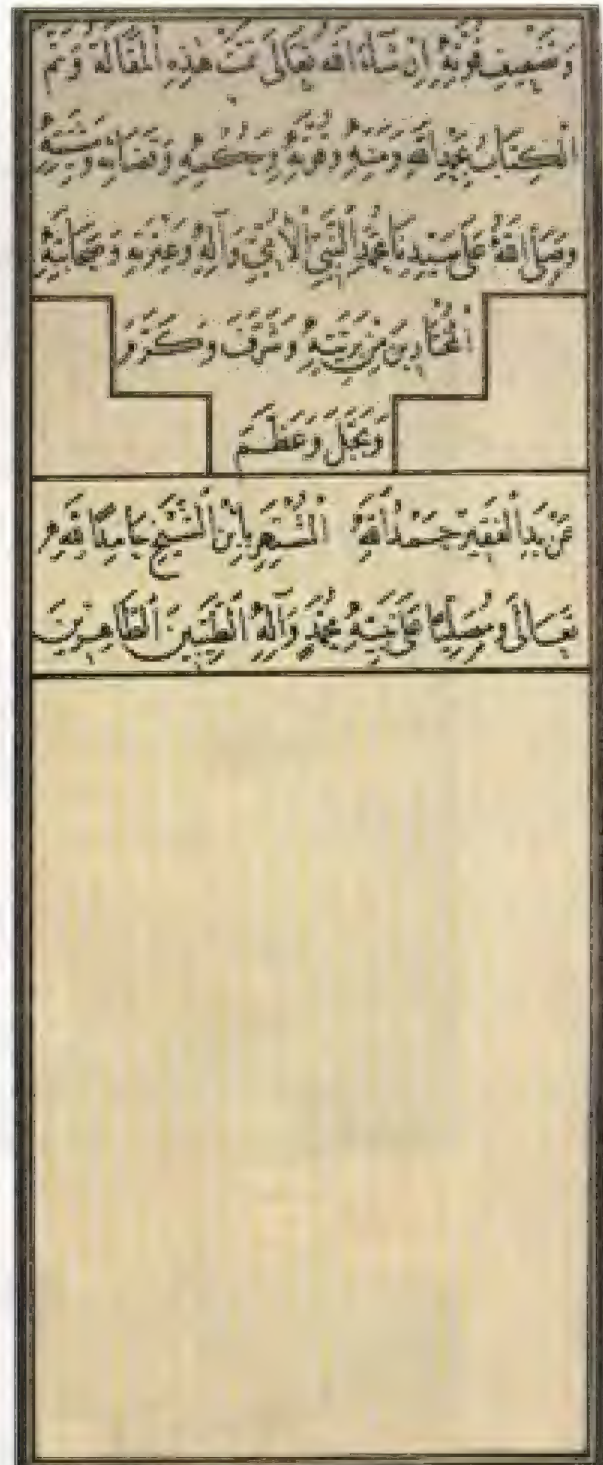 وَتَضْعِيفِ قُوَّتِهِ إِنْ شَاءَ اللهُ تَعَالَى تَمَّتْ هٰذِهِ الْمَقَالَةُ وَتَمَّ
الْكِتَابُ بِحَمْدِ اللهِ وَمَنِّهِ وَقُوَّتِهِ وَحِكْمَتِهِ وَقَضَائِهِ وَمَشِيَّتِهِ
وَصَلَّى اللهُ عَلَى سَيِّدِنَا مُحَمَّدٍ النَّبِيِّ الْأُمِّيِّ وَآلِهِ وَعِتْرَتِهِ وَصَحَابَتِهِ
الْمُخْتَارِينَ مِنْ بَرِيَّتِهِ وَشَرَّفَ وَكَرَّمَ
وَبَجَّلَ وَعَظَّمَ
عَنْ يَدِ الْفَقِيرِ حَمْدُ اللهِ الْمُشْتَهِرِ بِابْنِ الشَّيْخِ حَامِدًا لِلّٰهِ
تَعَالَى وَمُصَلِّيًا عَلَى نَبِيِّهِ مُحَمَّدٍ وَآلِهِ الطَّيِّبِينَ الطَّاهِرِينَ